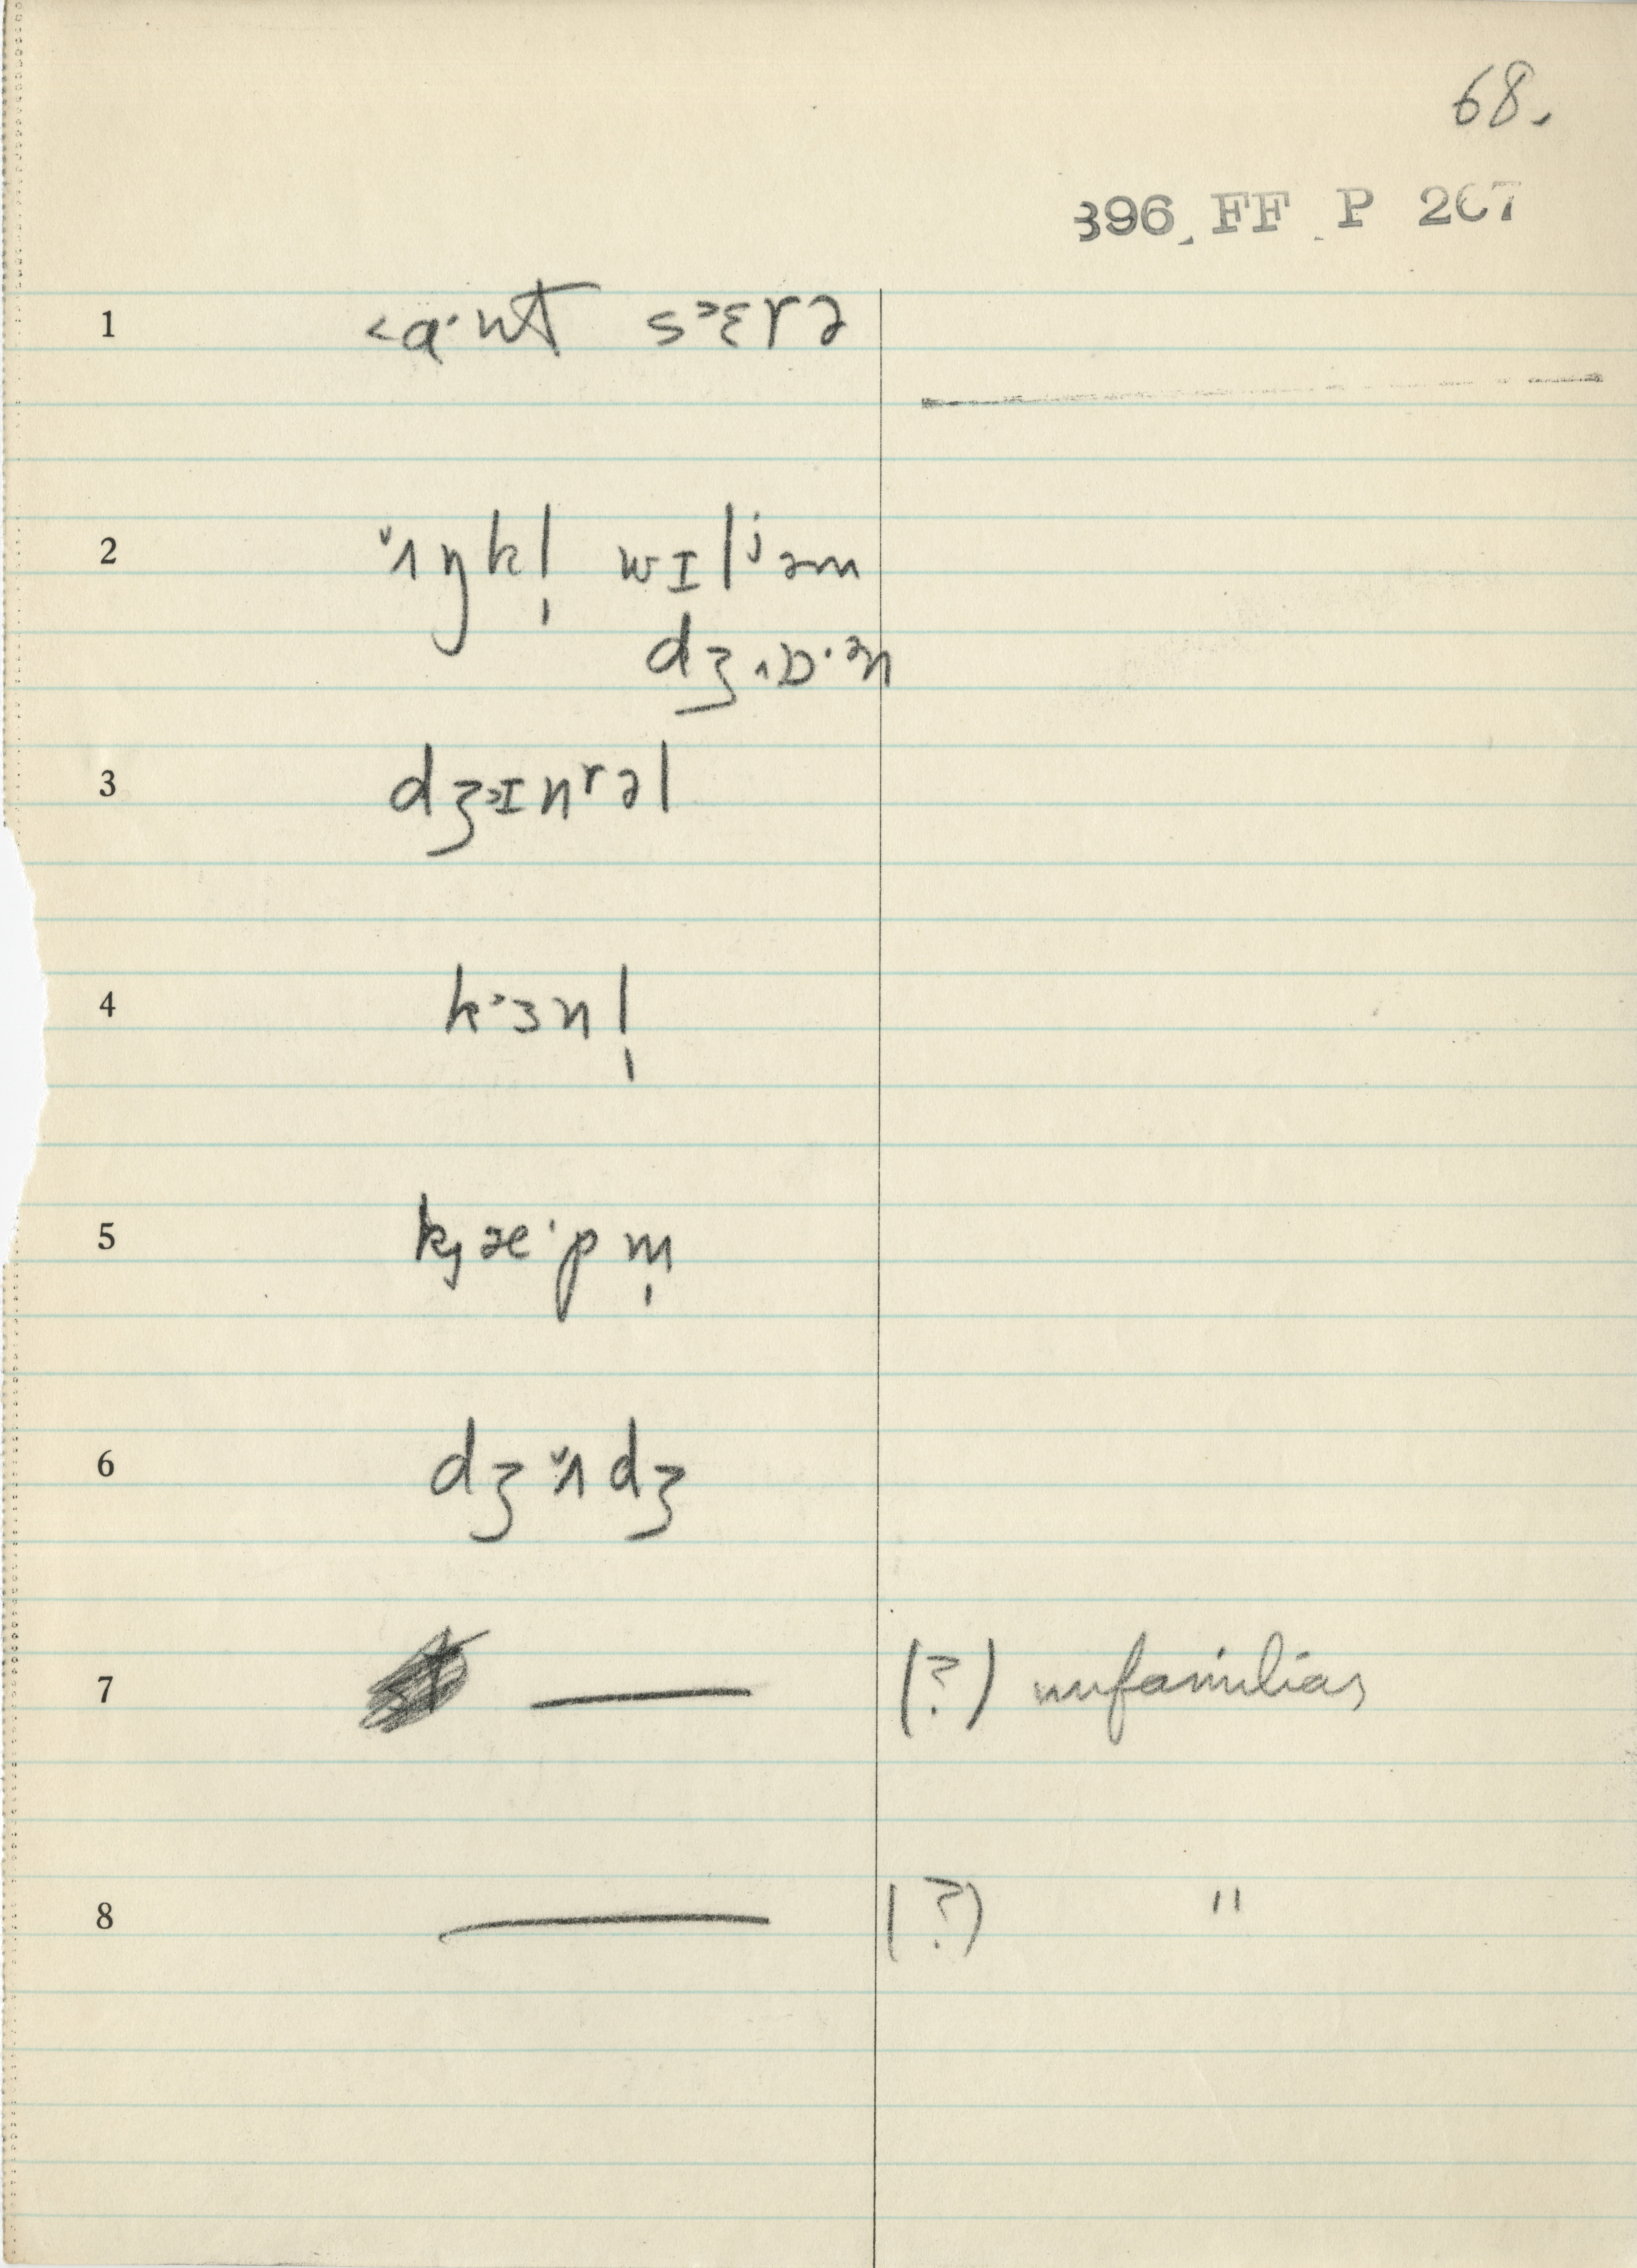 68.
396 FF P 207
1 ˂ɑ·nt s˃ɛrə
2 ˅ʌŋkl̩ wɪlʲəm
dʒ˄ɒ·ᵊn
3 dʒ˃ɪnʳəl
4 k˃ɜnl̩
5 k̡æ·pm̩
6 dʒ˅ʌdʒ
7 — (?) unfamiliar
8 — (?) "